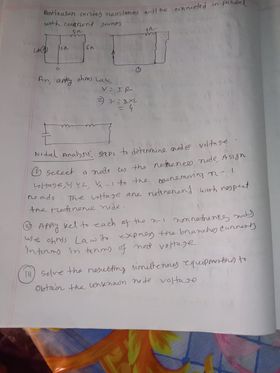 Particular carries resistance will be connected in parallel
with current source
5Ω
2Ω
5Ω
5Ω
An, apply ohms Law
V = IR
Nodal Analysis: steps to determine node voltage
(i) Select a node as the reference node. Assign
voltage, V1, V2, to the remaining n-1
nods. The voltage are referenced with respect
the reference node.
(ii) Apply KCL to each of the n-1 nonreference nods
We ohms Law to express the branches currents
in terms in terms of not voltage.
(iii) Solve the resulting simultenous equations to
obtain the unknown node voltage